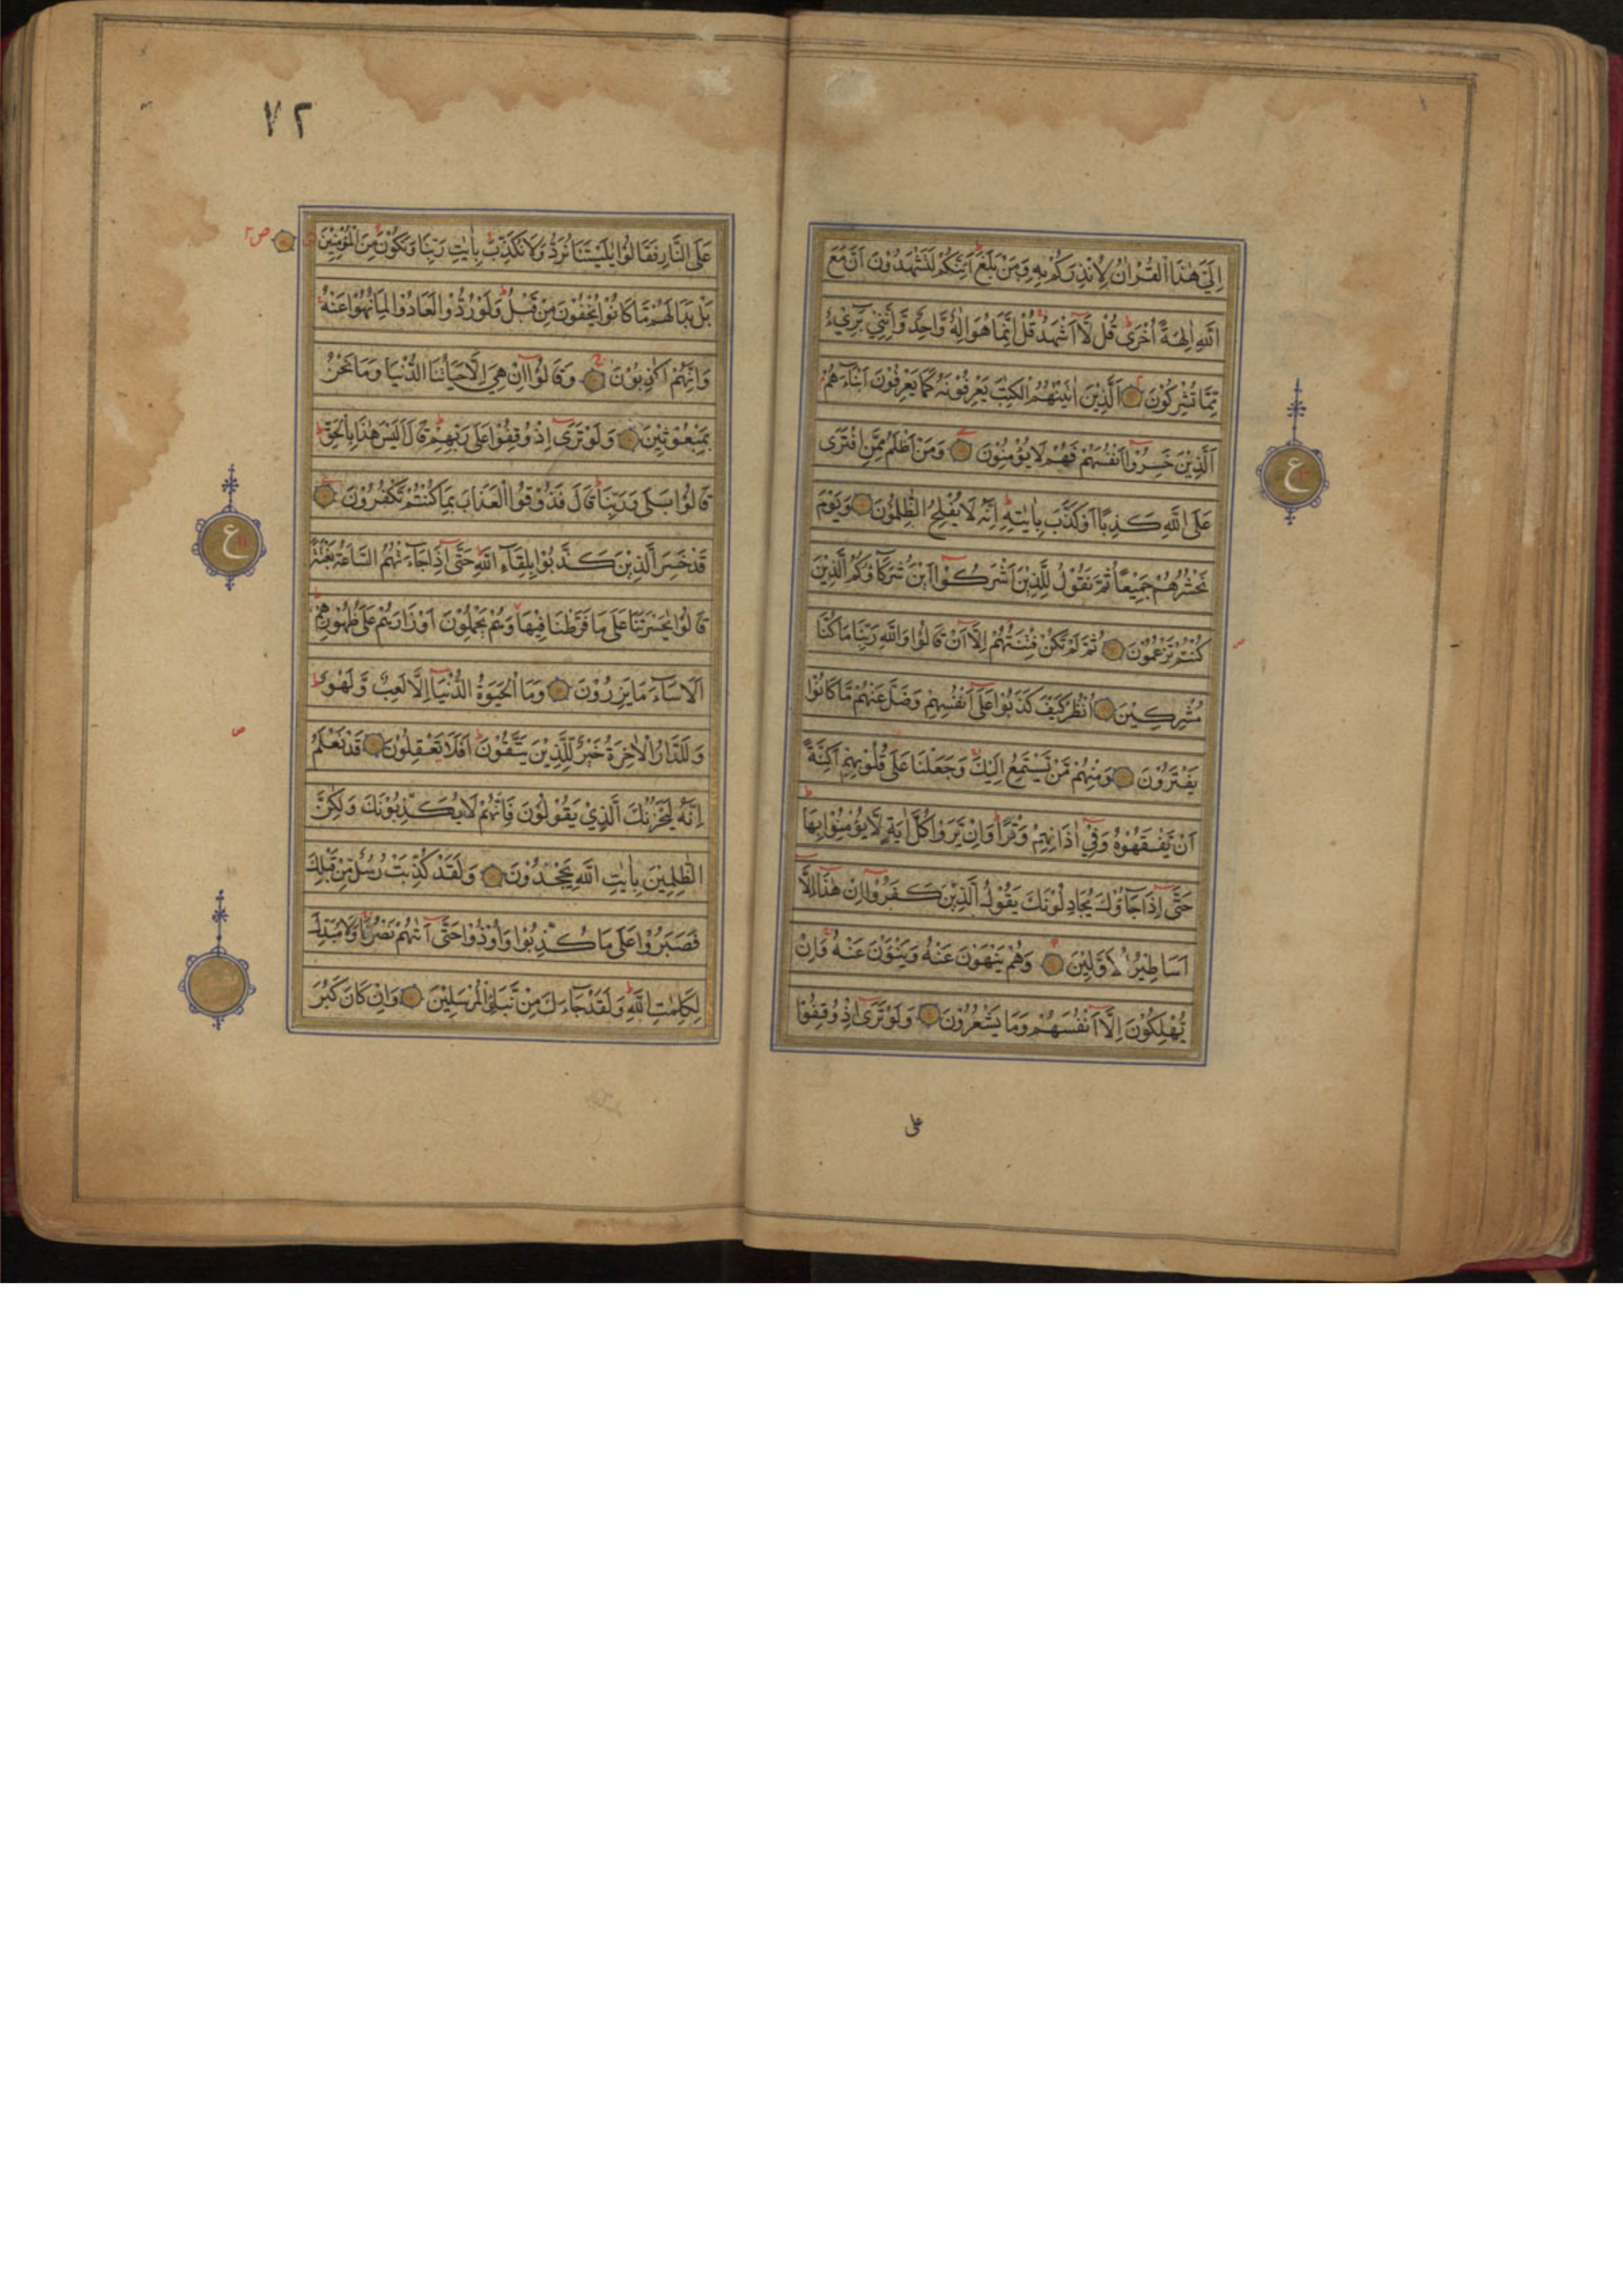 اِلَيَّ هٰذَا الْقُرْاٰنُ لِاُنْذِرَكُمْ بِهٖ وَمَنْ بَلَغَ اَئِنَّكُمْ لَتَشْهَدُوْنَ اَنَّ مَعَ
اللّٰهِ اٰلِهَةً اُخْرٰى قُلْ لَّا اَشْهَدُ قُلْ اِنَّمَا هُوَ اِلٰهٌ وَّاحِدٌ وَّاِنَّنِيْ بَرِيْءٌ
مِّمَّا تُشْرِكُوْنَ اَلَّذِيْنَ اٰتَيْنٰهُمُ الْكِتٰبَ يَعْرِفُوْنَهٗ كَمَا يَعْرِفُوْنَ اَبْنَآءَهُمْ
اَلَّذِيْنَ خَسِرُوْٓا اَنْفُسَهُمْ فَهُمْ لَا يُؤْمِنُوْنَ وَمَنْ اَظْلَمُ مِمَّنِ افْتَرٰى
عَلَى اللّٰهِ كَذِبًا اَوْ كَذَّبَ بِاٰيٰتِهٖ اِنَّهٗ لَا يُفْلِحُ الظّٰلِمُوْنَ وَيَوْمَ
نَحْشُرُهُمْ جَمِيْعًا ثُمَّ نَقُوْلُ لِلَّذِيْنَ اَشْرَكُوْٓا اَيْنَ شُرَكَآؤُكُمُ الَّذِيْنَ
كُنْتُمْ تَزْعُمُوْنَ ثُمَّ لَمْ تَكُنْ فِتْنَتُهُمْ اِلَّآ اَنْ قَالُوْا وَاللّٰهِ رَبِّنَا مَا كُنَّا
مُشْرِكِيْنَ اُنْظُرْ كَيْفَ كَذَبُوْا عَلٰٓى اَنْفُسِهِمْ وَضَلَّ عَنْهُمْ مَّا كَانُوْا
يَفْتَرُوْنَ وَمِنْهُمْ مَّنْ يَّسْتَمِعُ اِلَيْكَ وَجَعَلْنَا عَلٰى قُلُوْبِهِمْ اَكِنَّةً
اَنْ يَّفْقَهُوْهُ وَفِيْٓ اٰذَانِهِمْ وَقْرًا وَاِنْ يَّرَوْا كُلَّ اٰيَةٍ لَّا يُؤْمِنُوْا بِهَا
حَتّٰٓى اِذَا جَآؤُكَ يُجَادِلُوْنَكَ يَقُوْلُ الَّذِيْنَ كَفَرُوْٓا اِنْ هٰذَآ اِلَّا
اَسَاطِيْرُ الْاَوَّلِيْنَ وَهُمْ يَنْهَوْنَ عَنْهُ وَيَنْئَوْنَ عَنْهُ وَاِنْ
يُّهْلِكُوْنَ اِلَّآ اَنْفُسَهُمْ وَمَا يَشْعُرُوْنَ وَلَوْ تَرٰٓى اِذْ وُقِفُوْا
على
ع
٧٢
عَلَى النَّارِ فَقَالُوْا يٰلَيْتَنَا نُرَدُّ وَلَا نُكَذِّبَ بِاٰيٰتِ رَبِّنَا وَنَكُوْنَ مِنَ الْمُؤْمِنِيْنَ
بَلْ بَدَا لَهُمْ مَّا كَانُوْا يُخْفُوْنَ مِنْ قَبْلُ وَلَوْ رُدُّوْا لَعَادُوْا لِمَا نُهُوْا عَنْهُ
وَاِنَّهُمْ لَكٰذِبُوْنَ وَقَالُوْٓا اِنْ هِيَ اِلَّا حَيَاتُنَا الدُّنْيَا وَمَا نَحْنُ
بِمَبْعُوْثِيْنَ وَلَوْ تَرٰٓى اِذْ وُقِفُوْا عَلٰى رَبِّهِمْ قَالَ اَلَيْسَ هٰذَا بِالْحَقِّ
قَالُوْا بَلٰى وَرَبِّنَا قَالَ فَذُوْقُوا الْعَذَابَ بِمَا كُنْتُمْ تَكْفُرُوْنَ
قَدْ خَسِرَ الَّذِيْنَ كَذَّبُوْا بِلِقَآءِ اللّٰهِ حَتّٰٓى اِذَا جَآءَتْهُمُ السَّاعَةُ بَغْتَةً
قَالُوْا يٰحَسْرَتَنَا عَلٰى مَا فَرَّطْنَا فِيْهَا وَهُمْ يَحْمِلُوْنَ اَوْزَارَهُمْ عَلٰى ظُهُوْرِهِمْ
اَلَا سَآءَ مَا يَزِرُوْنَ وَمَا الْحَيٰوةُ الدُّنْيَآ اِلَّا لَعِبٌ وَّلَهْوٌ
وَلَلدَّارُ الْاٰخِرَةُ خَيْرٌ لِّلَّذِيْنَ يَتَّقُوْنَ اَفَلَا تَعْقِلُوْنَ قَدْ نَعْلَمُ
اِنَّهٗ لَيَحْزُنُكَ الَّذِيْ يَقُوْلُوْنَ فَاِنَّهُمْ لَا يُكَذِّبُوْنَكَ وَلٰكِنَّ
الظّٰلِمِيْنَ بِاٰيٰتِ اللّٰهِ يَجْحَدُوْنَ وَلَقَدْ كُذِّبَتْ رُسُلٌ مِّنْ قَبْلِكَ
فَصَبَرُوْا عَلٰى مَا كُذِّبُوْا وَاُوْذُوْا حَتّٰٓى اَتٰىهُمْ نَصْرُنَا وَلَا مُبَدِّلَ
لِكَلِمٰتِ اللّٰهِ وَلَقَدْ جَآءَكَ مِنْ نَّبَاِى الْمُرْسَلِيْنَ وَاِنْ كَانَ كَبُرَ
ع